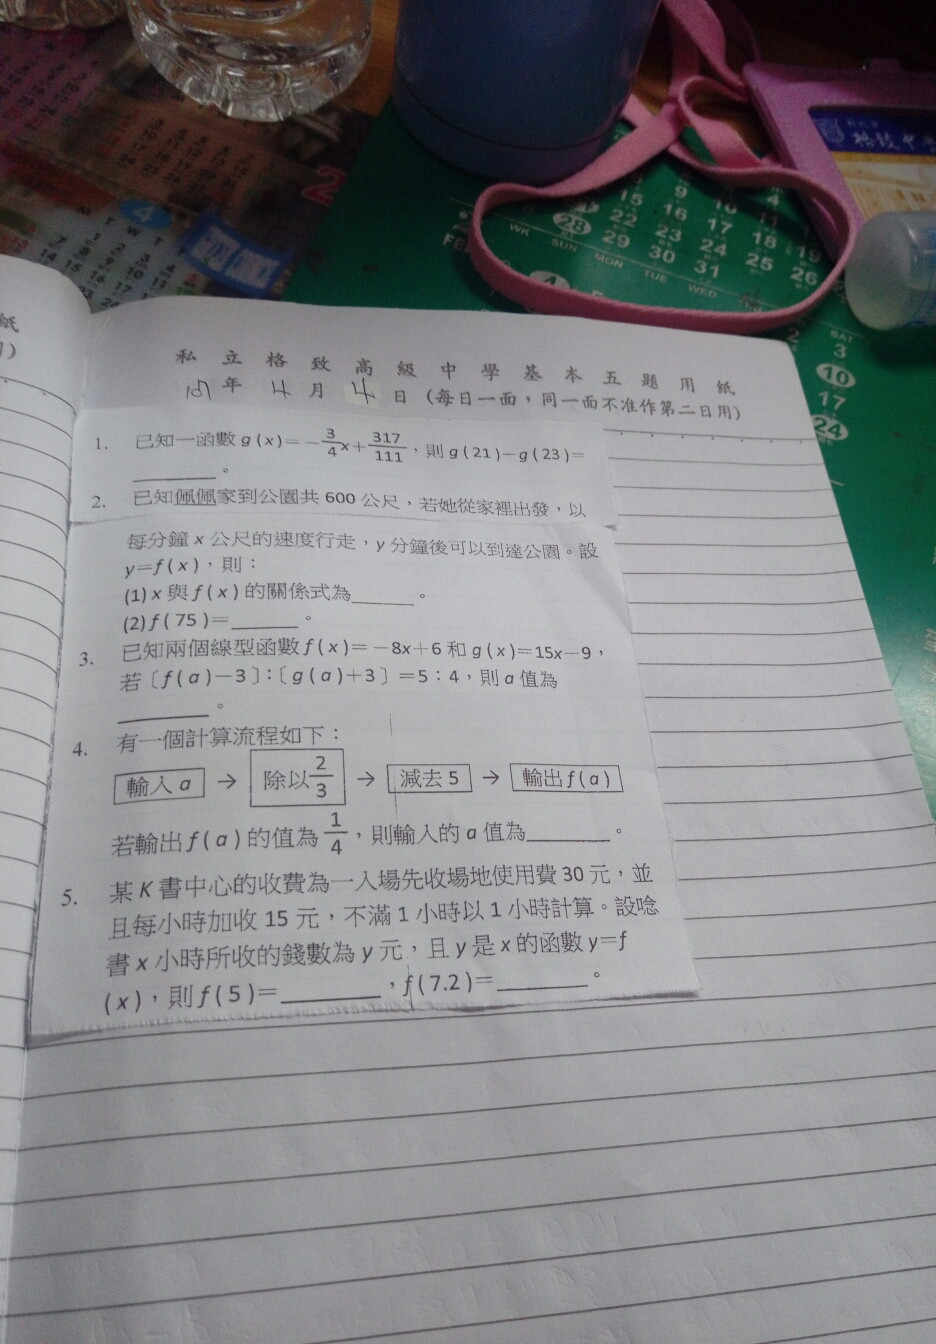 私立格致高級中學基本五題用紙
107年4月4日(每日一面,同一面不准作第二日用)
1. 已知一函數 g(x)=-3/4x+317/111,則 g(21)-g(23)=
________。
2. 已知佩佩家到公園共 600 公尺,若她從家裡出發,以
每分鐘 x 公尺的速度行走,y 分鐘後可以到達公園。設
y=f(x),則:
(1) x 與 f(x) 的關係式為______。
(2) f(75)=_______。
3. 已知兩個線型函數 f(x)=-8x+6 和 g(x)=15x-9,
若〔f(a)-3〕:〔g(a)+3〕=5:4,則 a 值為
________。
4. 有一個計算流程如下:
輸入 a → 除以 2/3 → 減去 5 → 輸出 f(a)
若輸出 f(a) 的值為 1/4,則輸入的 a 值為________。
5. 某 K 書中心的收費為一入場先收場地使用費 30 元,並
且每小時加收 15 元,不滿 1 小時以 1 小時計算。設唸
書 x 小時所收的錢數為 y 元,且 y 是 x 的函數 y=f
(x),則 f(5)=________,f(7.2)=________。
紙
格致中
4
M T W T
WK SUN MON TUE WED
15 16 17 18 19
22 23 24 25 26
28 29 30 31
SAT
3
10
17
24